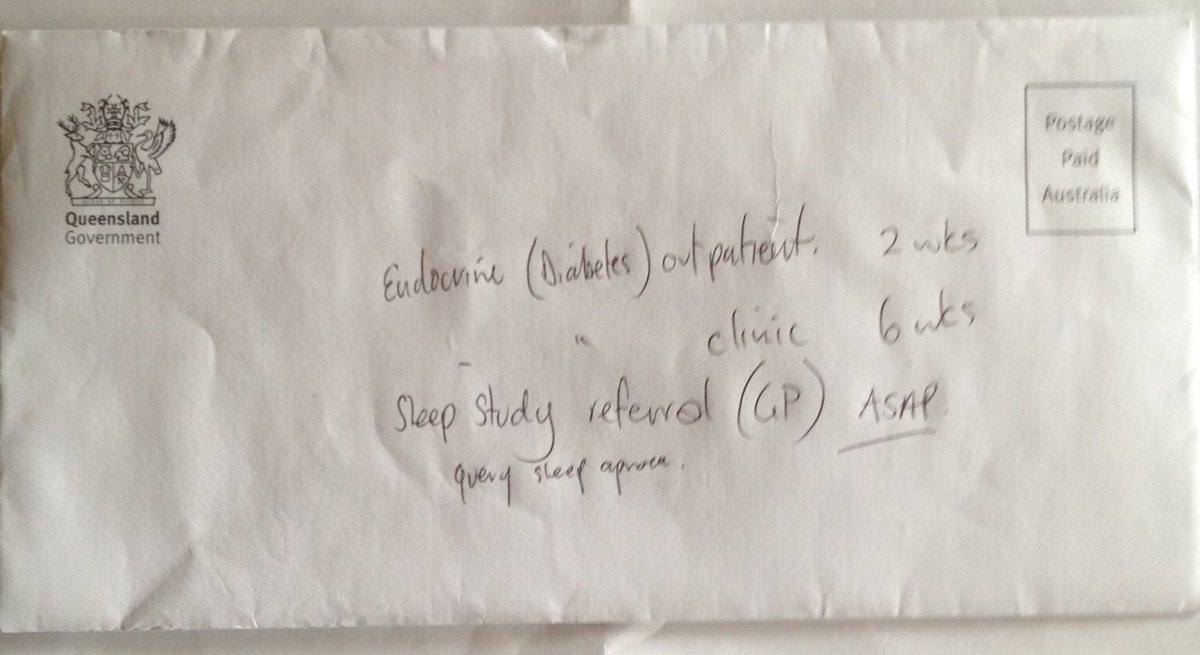 Queensland
Government
Postage
Paid
Australia
Endocrine (Diabetes) outpatient. 2 wks
" clinic 6 wks
Sleep Study referral (GP) ASAP.
query sleep apnoea.